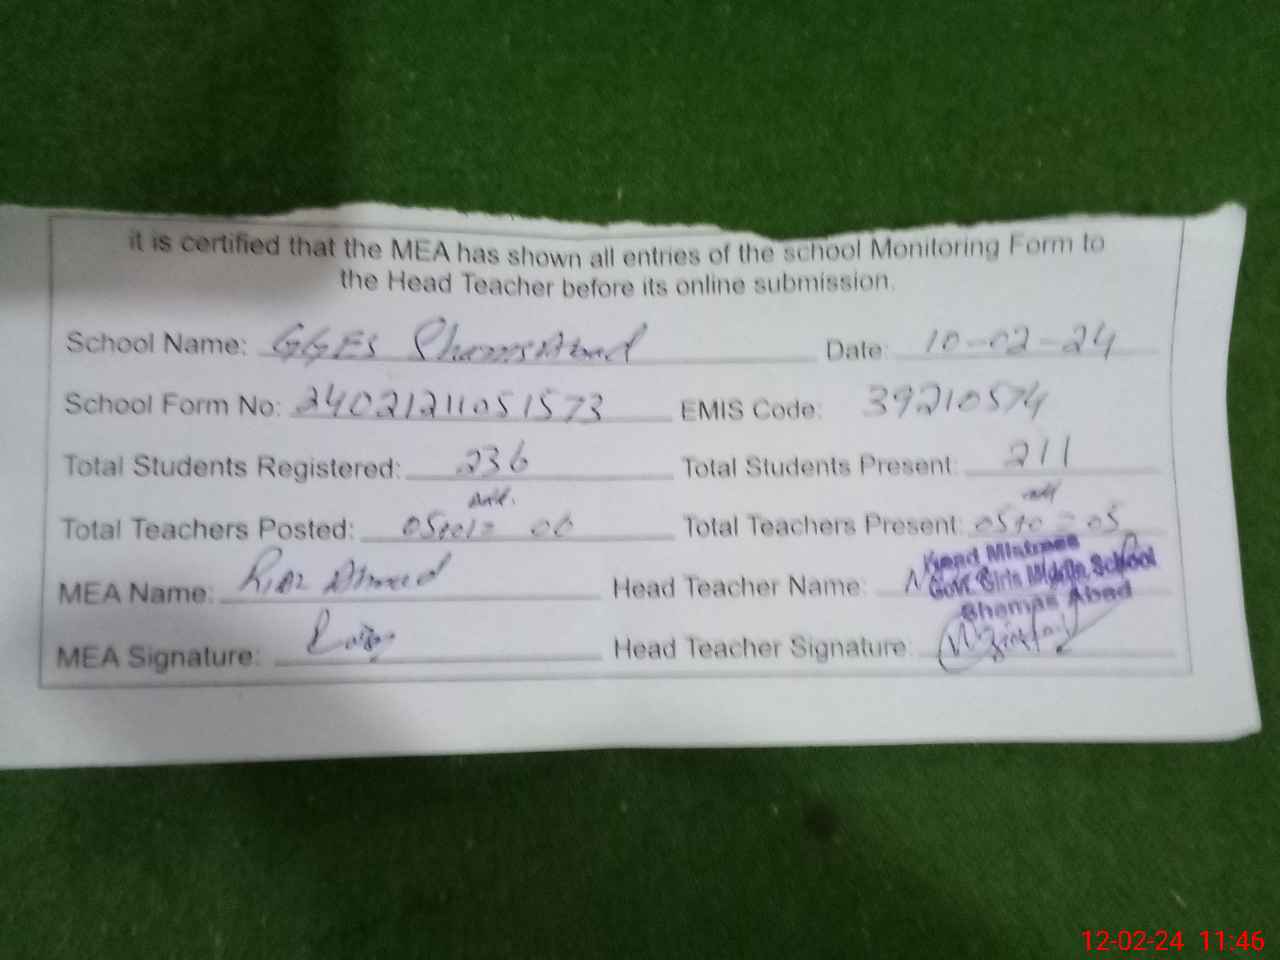 it is certified that the MEA has shown all entries of the school Monitoring Form to
the Head Teacher before its online submission.
School Name: GGES ShamsAbad Date: 10-02-24
School Form No: 24021211051573 EMIS Code: 39210574
Total Students Registered: 236 Total Students Present: 211
Total Teachers Posted: 05+01= 06 Total Teachers Present: 05+0=05
MEA Name: Riaz Ahmad Head Teacher Name:
Head Mistress
Govt. Girls Middle School
Shamas Abad
MEA Signature: Head Teacher Signature:
12-02-24 11:46